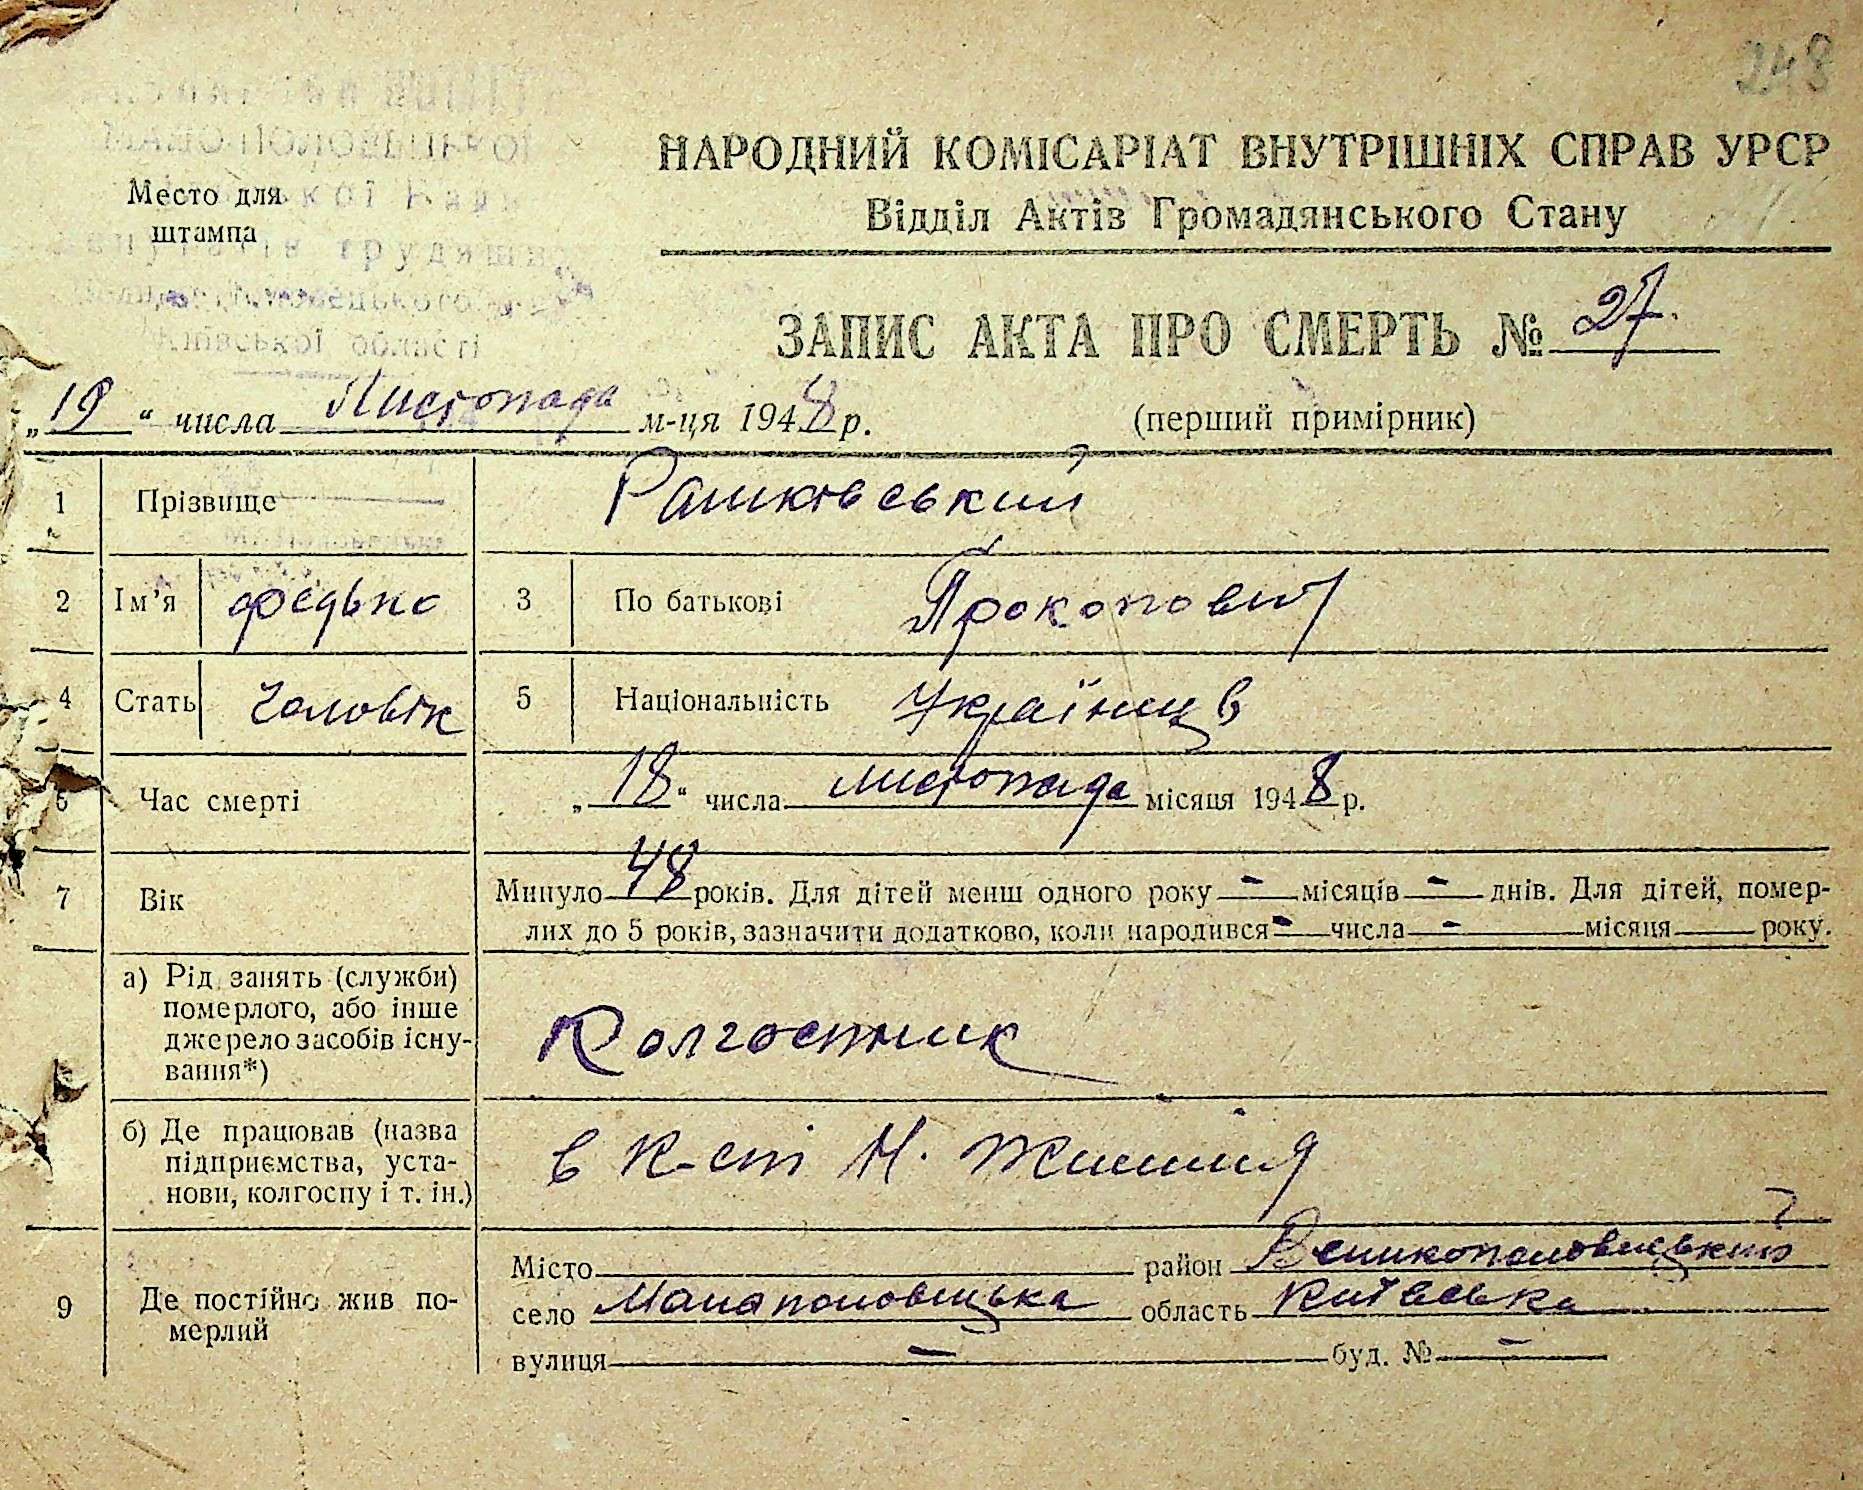 248
МАЛО-ПОЛОВЕЦЬКОЇ
НАРОДНИЙ КОМІСАРІАТ ВНУТРІШНІХ СПРАВ УРСР
Место для
штампа
Відділ Актів Громадянського Стану
трудящих
Київської області
ЗАПИС АКТА ПРО СМЕРТЬ № 27.
„19“ числа Листопада м-ця 1948 р.
(перший примірник)
1 Прізвище Рашківський
2 Ім’я Федько 3 По батькові Прокопович
4 Стать Чоловік 5 Національність Українець
6 Час смерті „18“ числа листопада місяця 1948 р.
7 Вік Минуло 48 років. Для дітей менш одного року – місяців – днів. Для дітей, помер-
лих до 5 років, зазначити додатково, коли народився – числа – місяця року.
а) Рід занять (служби)
померлого, або інше
джерело засобів існу-
вання*)
Колгоспник
б) Де працював (назва
підприємства, уста-
нови, колгоспу і т. ін.)
в к-спі Н. Життя
9 Де постійно жив по-
мерлий
Місто район Великополовецький
село Малаполовецька область Київська
вулиця – буд. № –